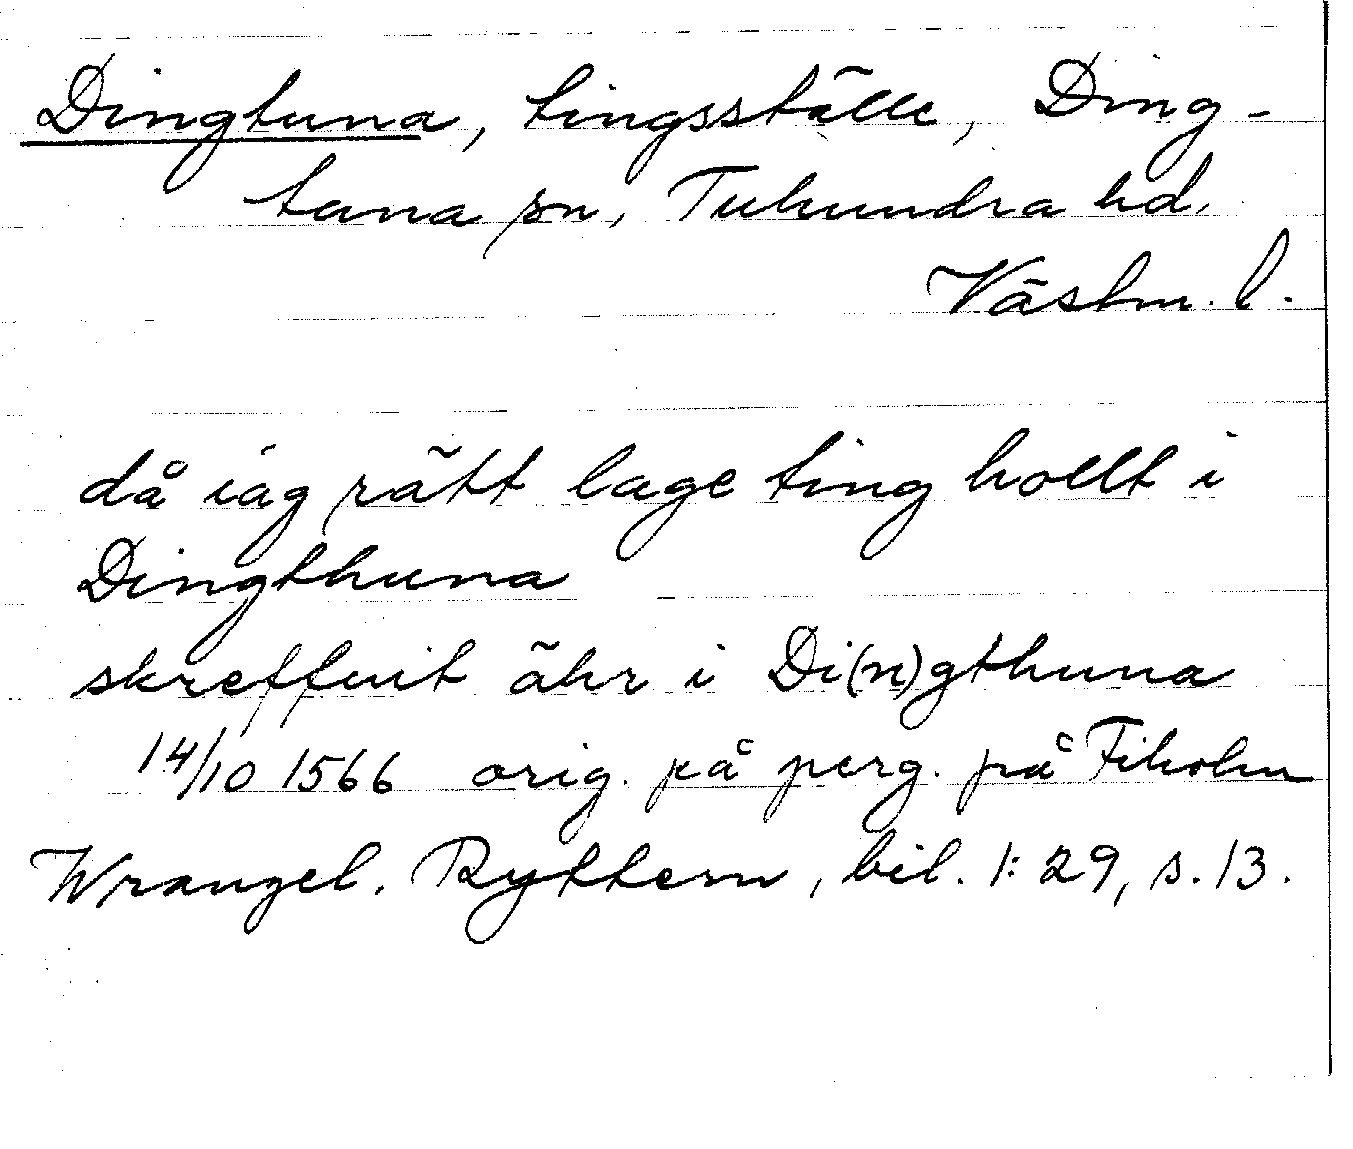 Dingtuna, tingsställe, Ding-
tuna sn, Tuhundra hd,
Västm. l.
då iag rätt lage ting hollt i
Dingthuna
skreffuit ähr i Di(n)gthuna
14/10 1566 orig. på perg. på Fiholm
Wrangel. Ryttern, bil. 1:29, s. 13.